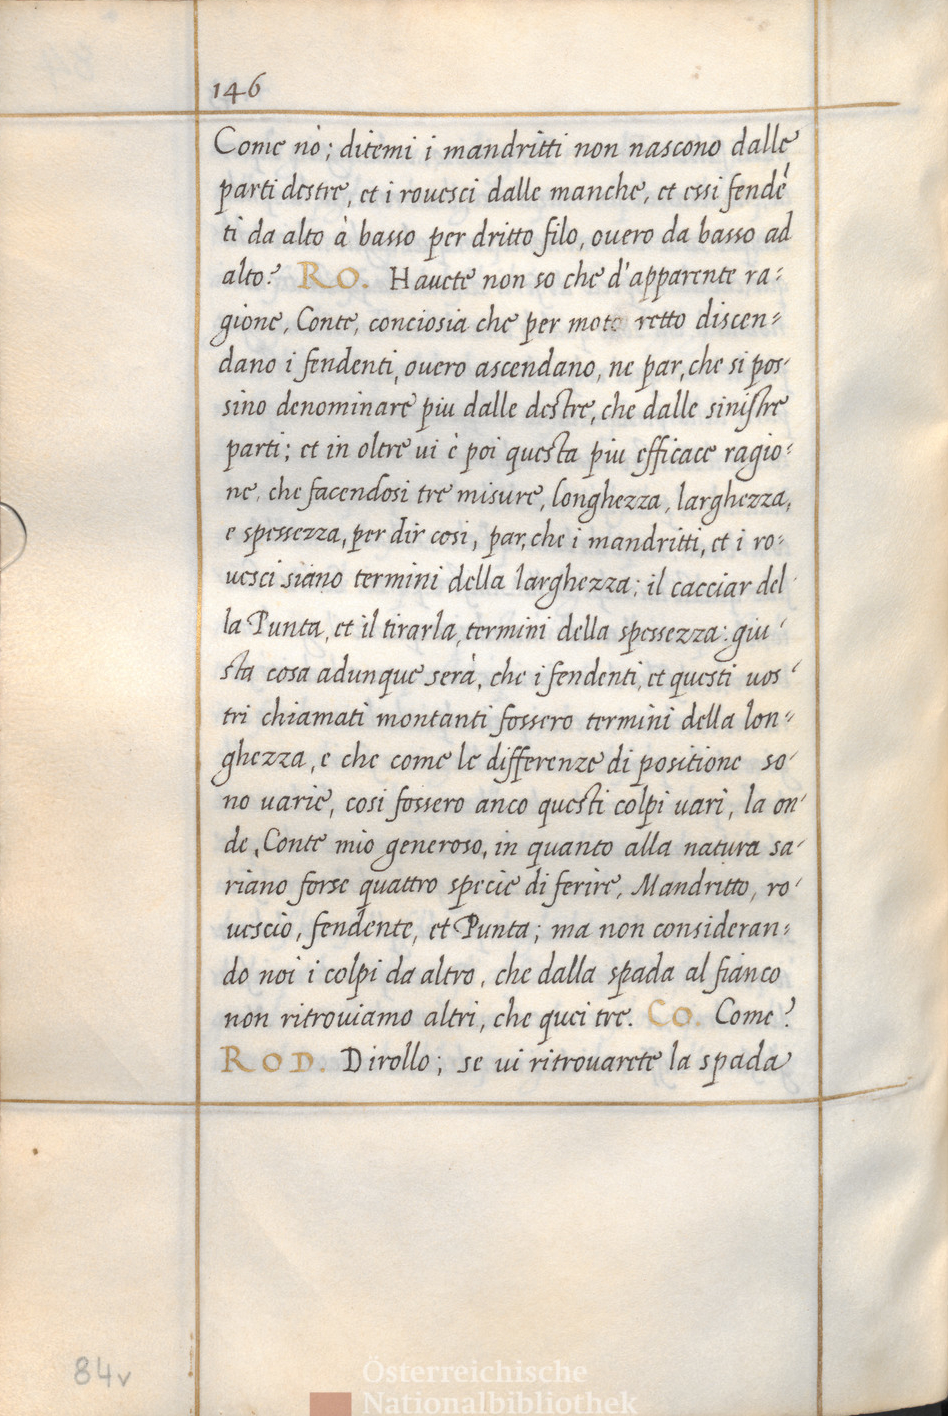 146
Come nò; ditemi i mandritti non nascono dalle
parti destre, et i rouesci dalle manche, et essi fendẽ
ti da alto à basso per dritto filo, ouero da basso ad
alto? RO. Hauete non so che d'apparente ra:
gione, Conte, conciosia che per moto retto discen:
dano i fendenti, ouero ascendano, ne par, che si pos-
sino denominare piu dalle destre, che dalle sinistre
parti; et in oltre ui è poi questa piu efficace ragio:
ne, che facendosi tre misure, longhezza, larghezza,
e spessezza, per dir cosi, par, che i mandritti, et i ro:
uesci siano termini della larghezza; il cacciar del
la Punta, et il tirarla, termini della spessezza: giu-
sta cosa adunque serà, che i fendenti, et questi uos-
tri chiamati montanti fossero termini della lon:
ghezza, e che come le differenze di positione so-
no uarie, cosi fossero anco questi colpi uari, la on-
de, Conte mio generoso, in quanto alla natura sa-
riano forse quattro specie di ferire, Mandritto, ro-
uescio, fendente, et Punta; ma non consideran:
do noi i colpi da altro, che dalla spada al fianco
non ritrouiamo altri, che quei tre. CO. Come?
ROD. Dirollo; se ui ritrouarete la spada
84v
Österreichische
Nationalbibliothek